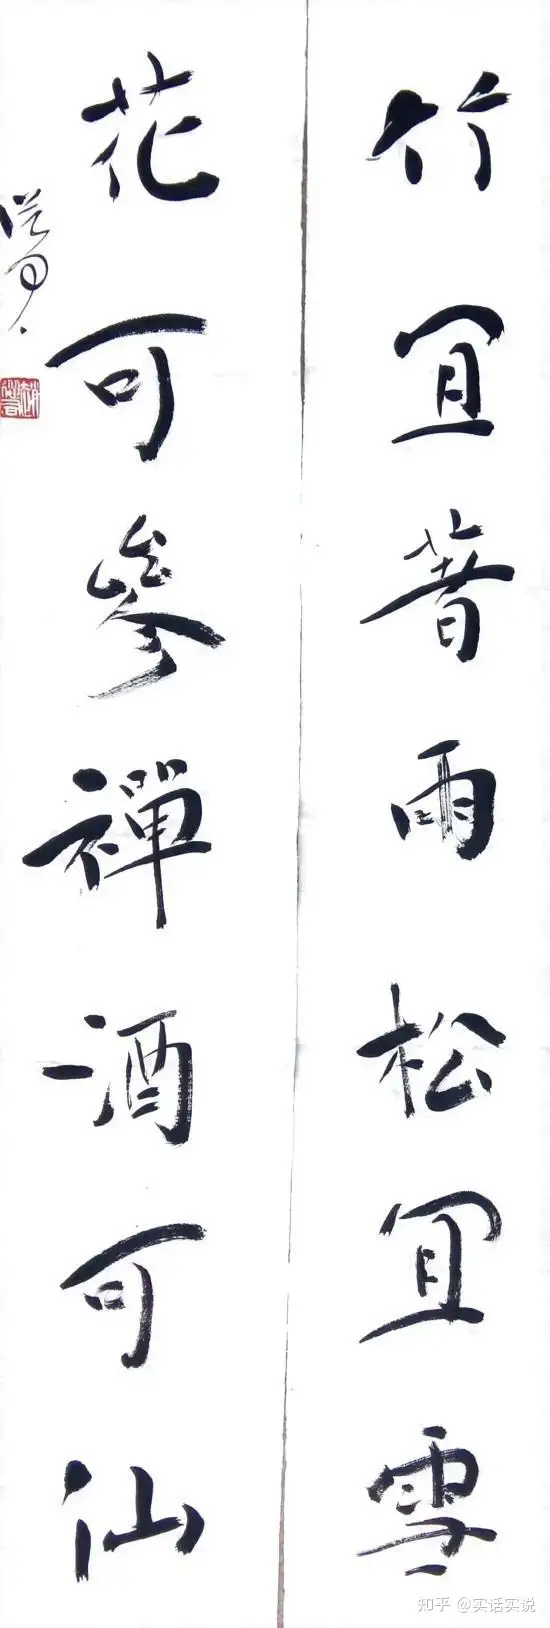 竹宜著雨松宜雪
花可參禪酒可仙
知乎 @实话实说